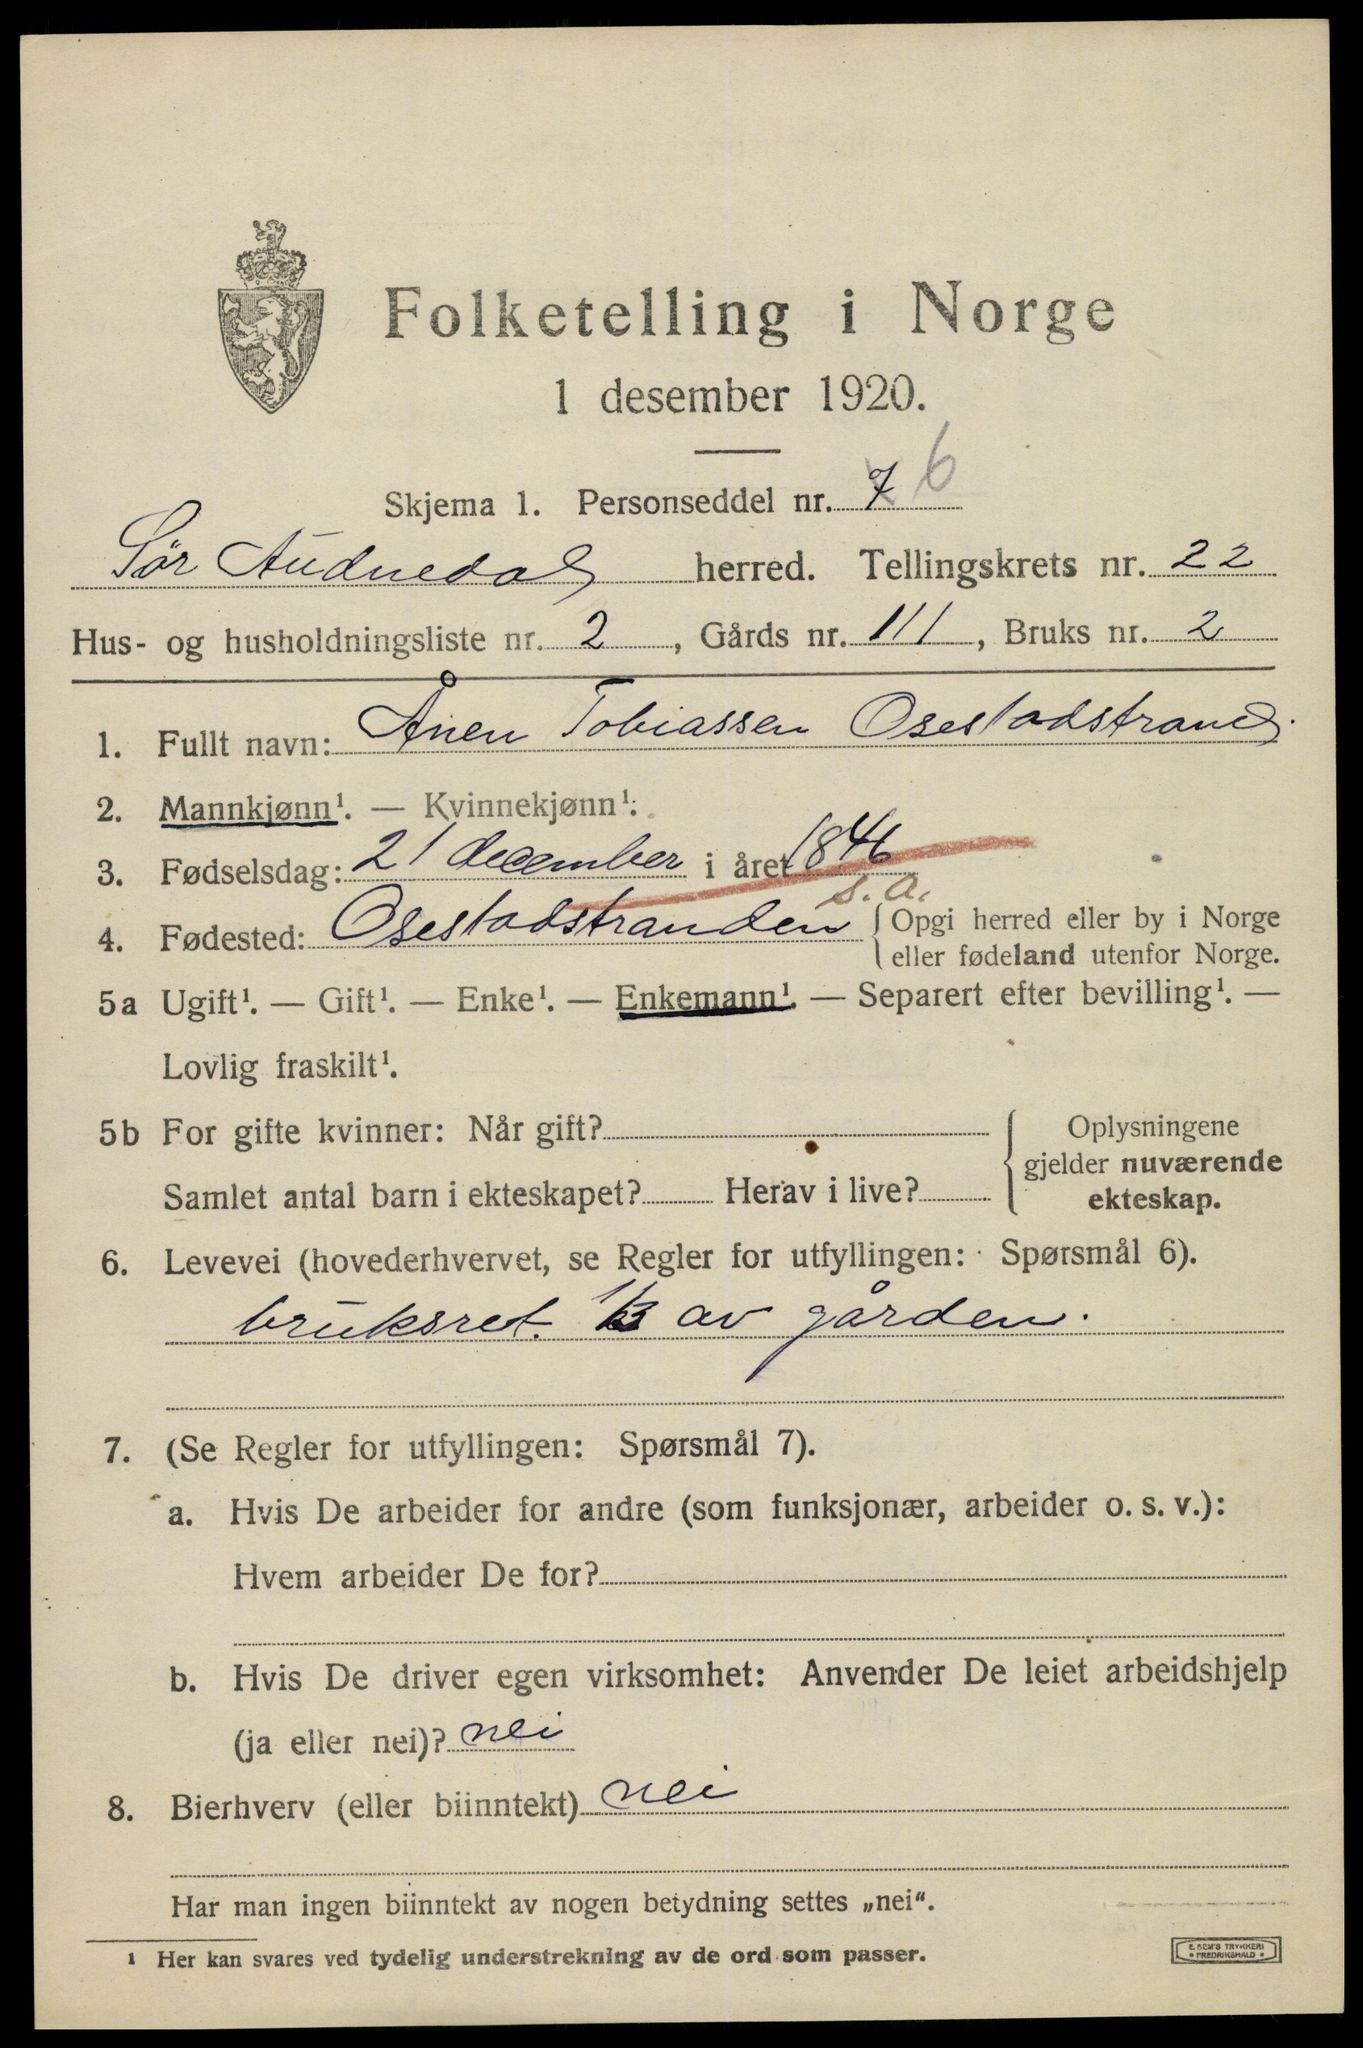 Folketelling i Norge
1 desember 1920.
Skjema 1. Personseddel nr. 7 6
Sør Audnedal herred. Tellingskrets nr. 22
Hus- og husholdningsliste nr. 2, Gårds nr. 111, Bruks nr. 2
1. Fullt navn: Ånen Tobiassen Osestadstrand.
2. Mannkjønn¹. — Kvinnekjønn¹.
3. Fødselsdag: 21 december i året 1846
s. a.
4. Fødested: Osestadstranden { Opgi herred eller by i Norge
eller fødeland utenfor Norge.
5a Ugift¹. — Gift¹. — Enke¹. — Enkemann¹. — Separert efter bevilling¹. —
Lovlig fraskilt¹.
5b For gifte kvinner: Når gift? Oplysningene
gjelder nuværende
Samlet antal barn i ekteskapet? Herav i live? ekteskap.
6. Levevei (hovederhvervet, se Regler for utfyllingen: Spørsmål 6).
bruksret. 1/3 av gården.
7. (Se Regler for utfyllingen: Spørsmål 7).
a. Hvis De arbeider for andre (som funksjonær, arbeider o. s. v.):
Hvem arbeider De for?
b. Hvis De driver egen virksomhet: Anvender De leiet arbeidshjelp
(ja eller nei)? nei
8. Bierhverv (eller biinntekt) nei
Har man ingen biinntekt av nogen betydning settes „nei“.
¹ Her kan svares ved tydelig understrekning av de ord som passer.
E. SEM'S TRYKKERI
• FREDRIKSHALD •